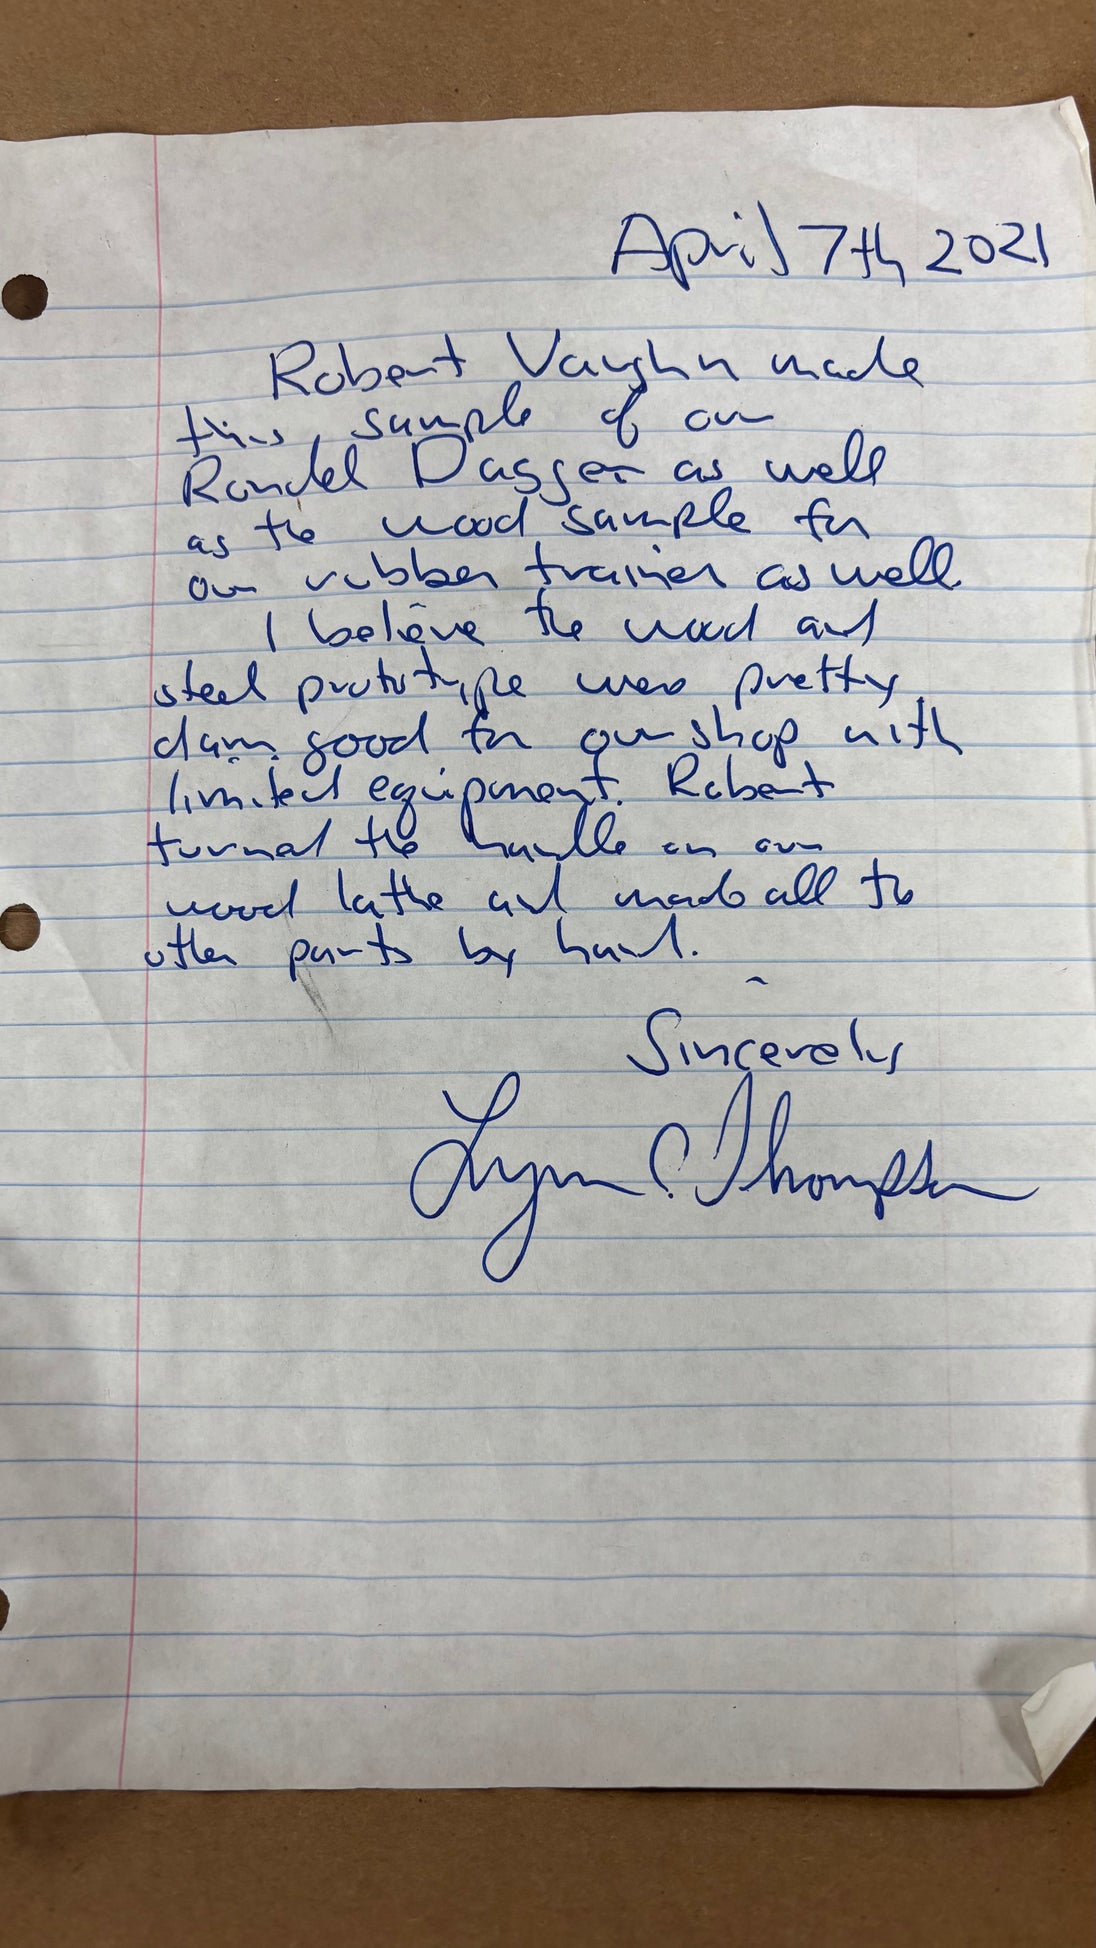 April 7th 2021
Robert Vaughn made
this sample of our
Rondel Dagger as well
as the wood sample for
our rubber trainer as well
I believe the wood and
steel prototype were pretty
damn good for our shop with
limited equipment. Robert
turned the handle on our
wood lathe and made all the
other parts by hand.
Sincerely
Lynn C Thompson